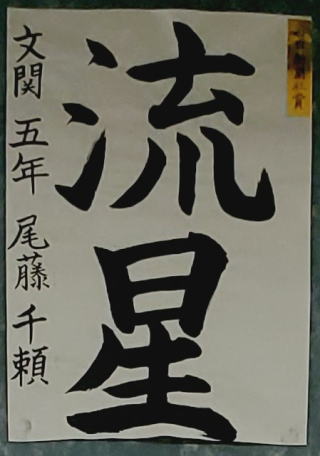 流星
文関 五年 尾藤 千頼